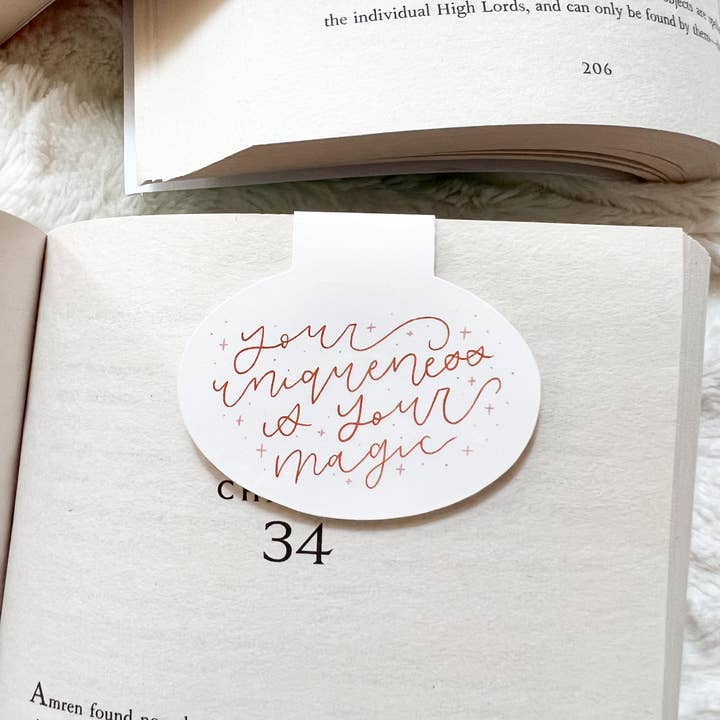 objects are
the individual High Lords, and can only be found by them
206
your
uniqueness
is your
magic
34
Amren found